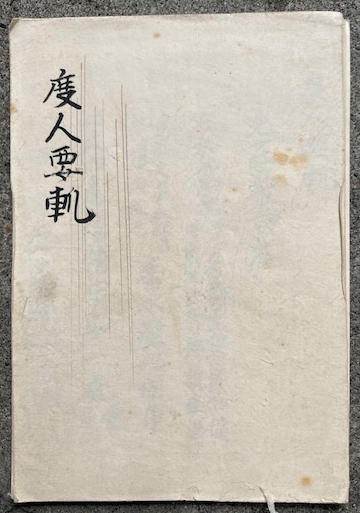 度人要軌